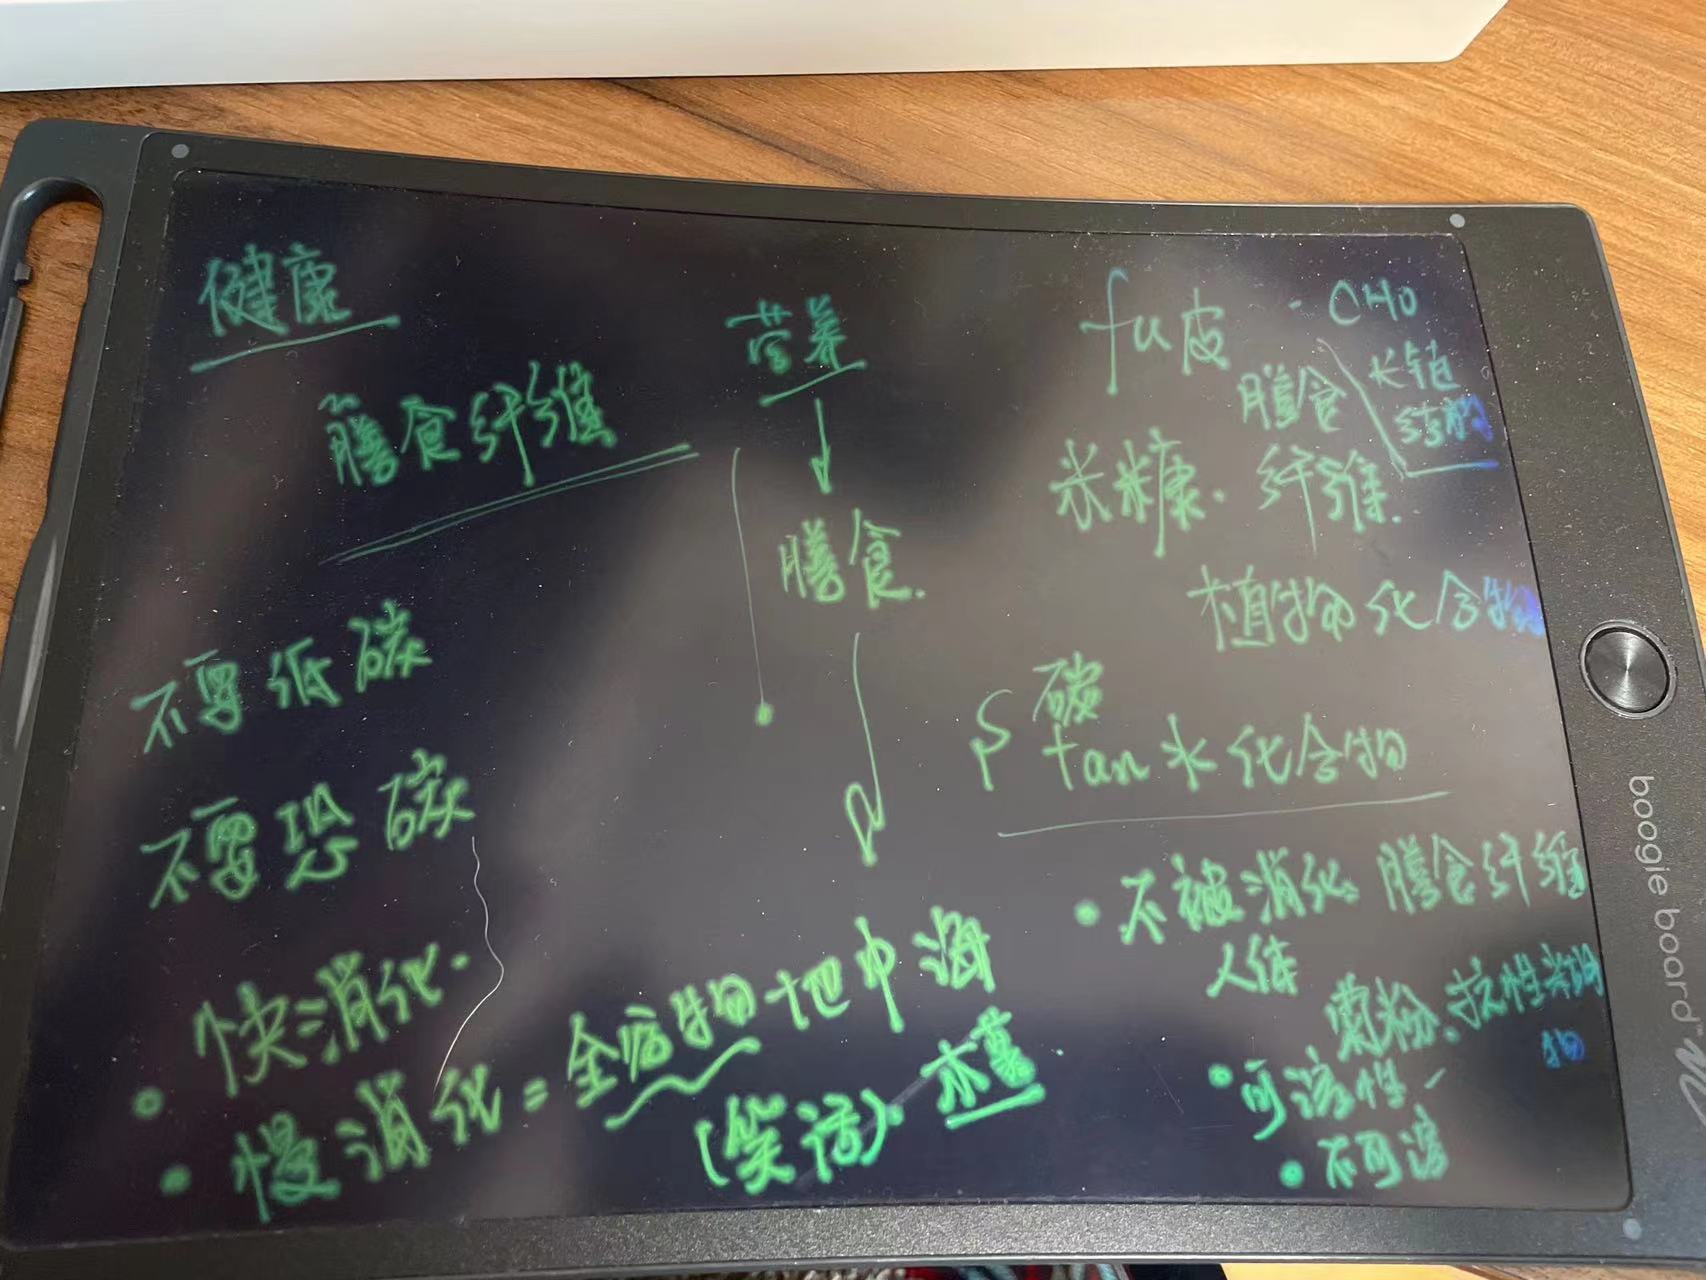 健康
膳食纤维
不要低碳
不要恐碳
快消化.
慢消化 = 全谷物 地中海
(笑话).
营养
膳食.
fu皮
米糠.
膳食
纤维.
CHO
长链
结构
植物化合物
碳
tan水化合物
不被消化 膳食纤维
人体
菊粉.抗性
可溶性
不可溶
boogie board